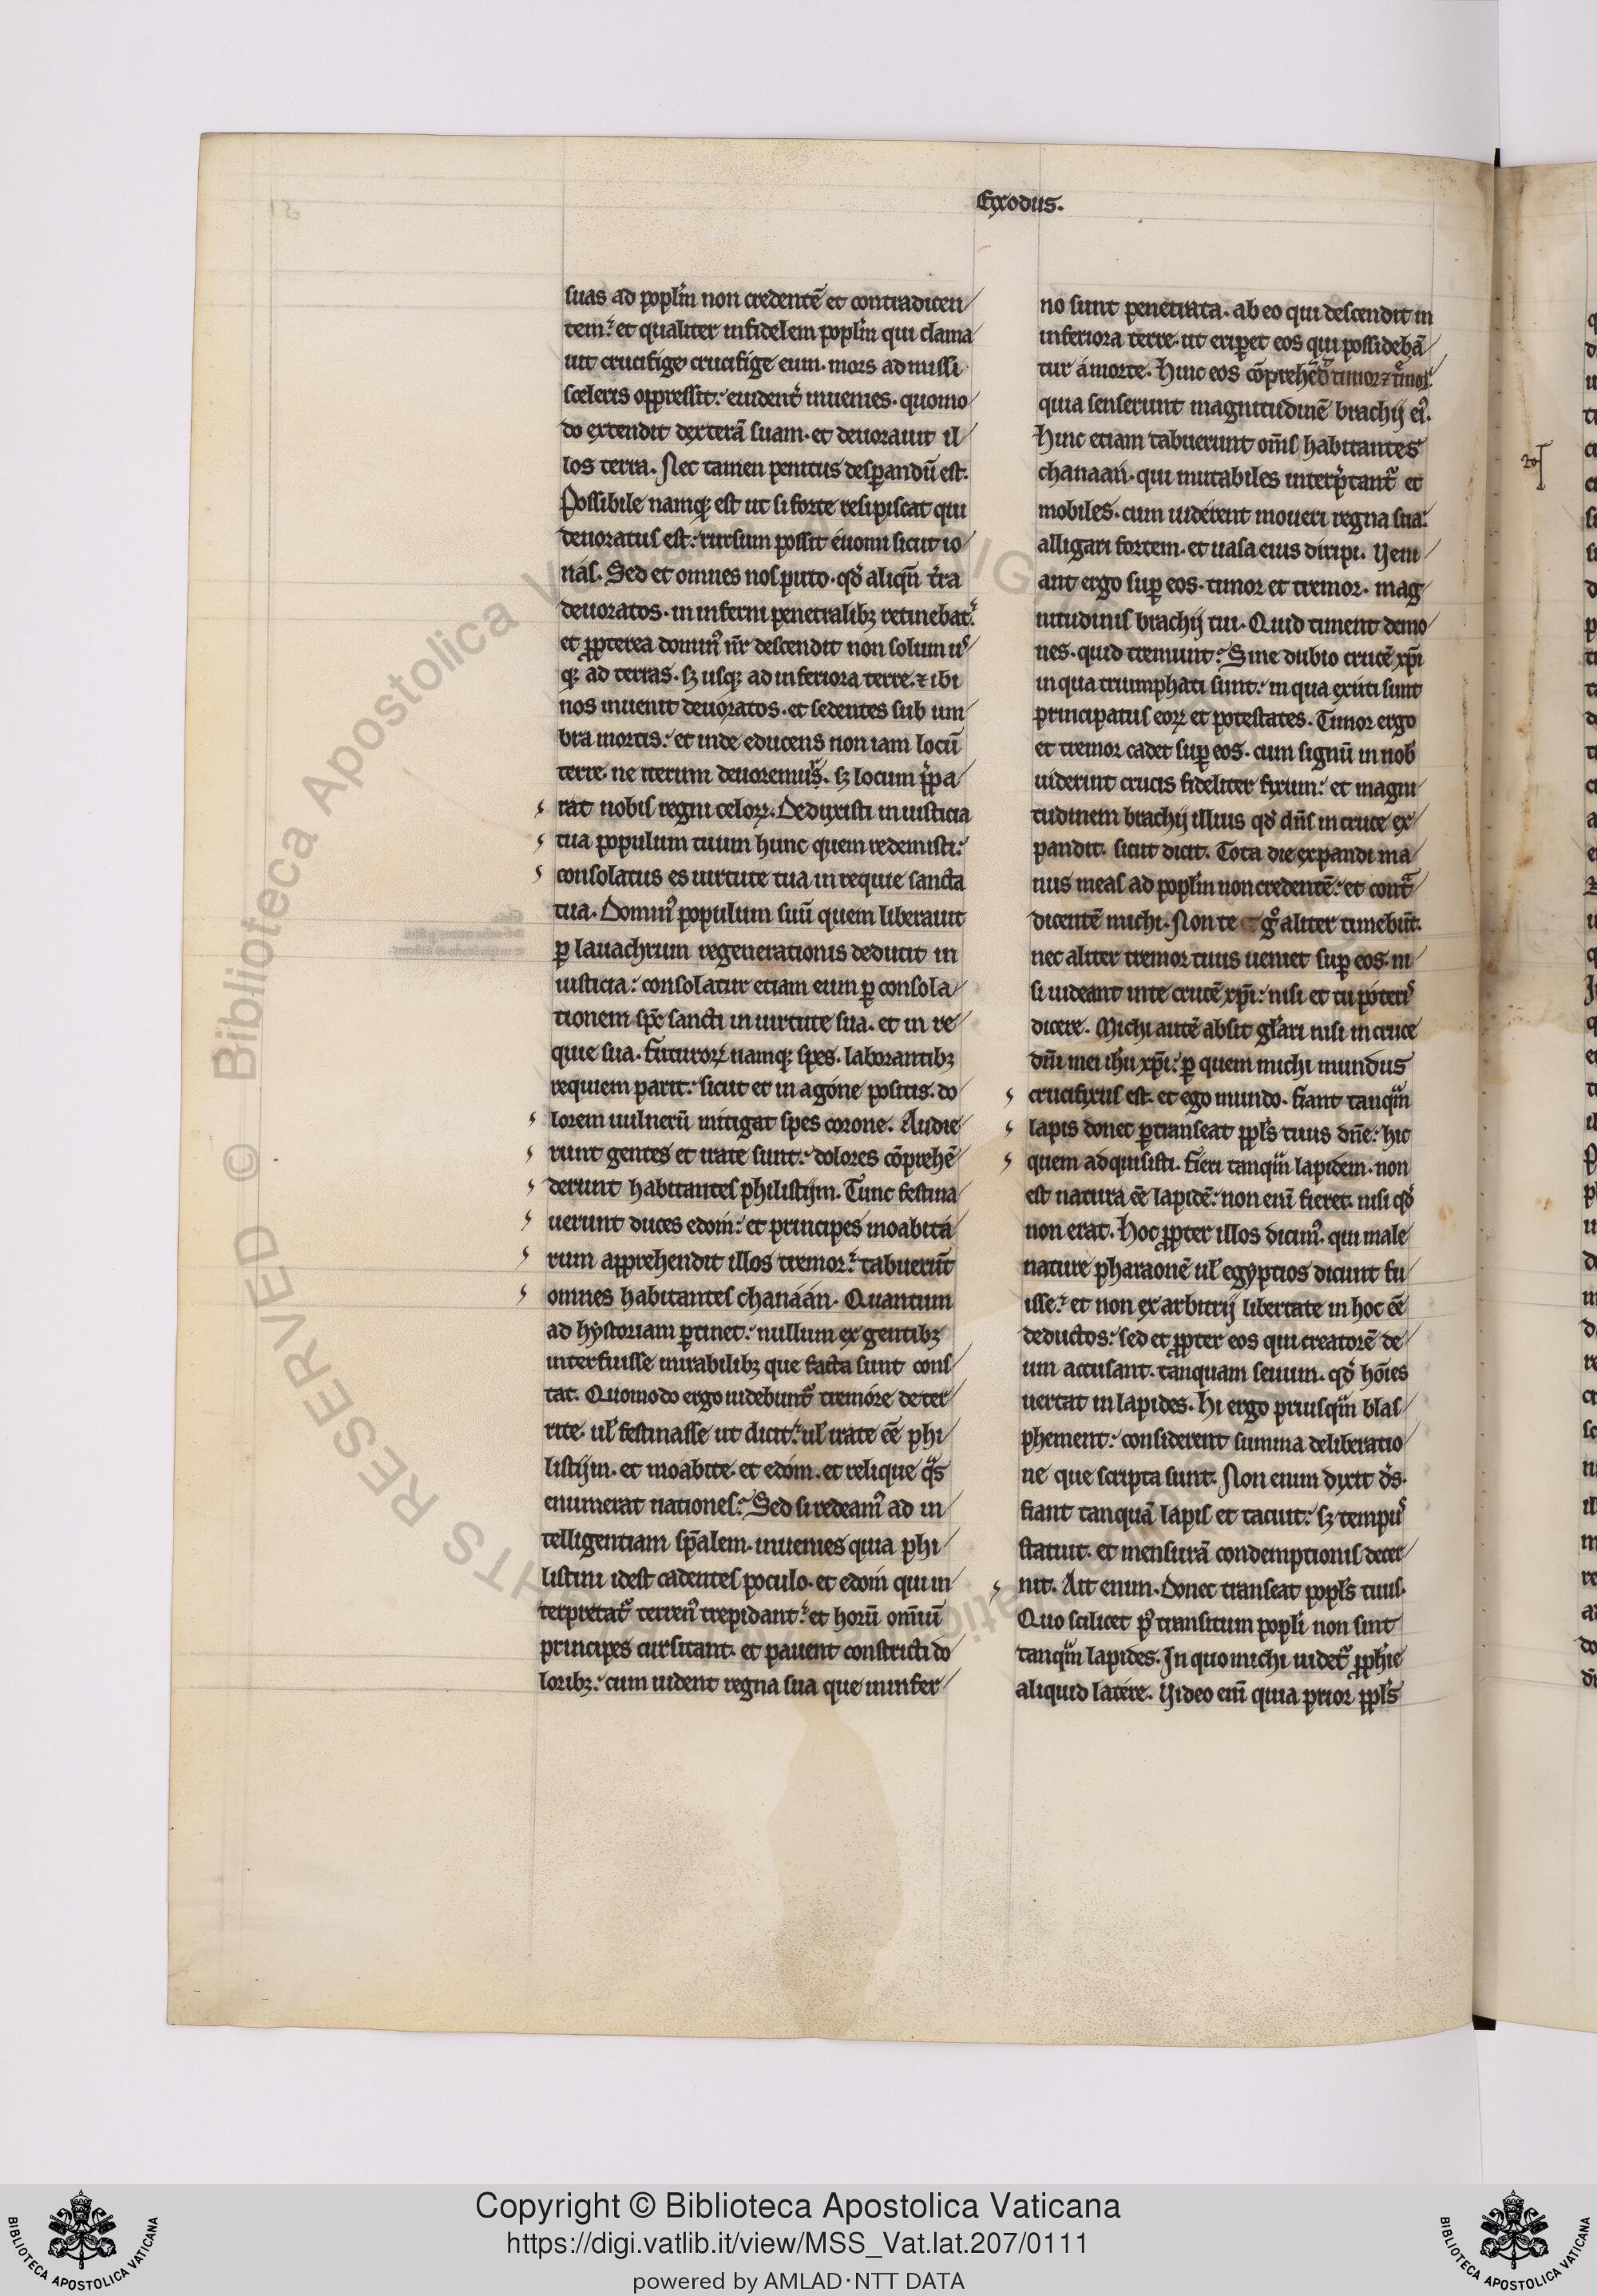 Exodus.
suas ad popl'm non credentē et contradicen
tem: et qualiter infidelem popl'm qui clama
uit crucifige crucifige eum. mors admissi
sceleris oppressit: euident' inuenies. quomo
do extendit dexterā suam. et deuorauit il
los terra. Nec tamen penitus desperandū est.
Possibile namq; est ut si forte resipiscat qui
deuoratus est: rursum possit euomi sicut io
nas. Sed et omnes nos puto. qđ aliqn̄ t'ra
deuoratos. in inferni penetralibȝ retinebat:
et ꝓpterea domin' nr̄ descendit non solum us
q; ad terras. sȝ usq; ad inferiora terre. ⁊ ibi
nos inuenit deuoratos. et sedentes sub um
bra mortis: et inde educens non iam locū
terre. ne iterum deuoremur. sȝ locum p̄pa
rat nobis regni celoꝝ. Deduxisti in iusticia
tua populum tuum hunc quem redemisti:
consolatus es uirtute tua in requie sancta
tua. Domin' populum suū quem liberauit
ꝑ lauachrum regenerationis deducit in
iusticia: consolatur etiam eum ꝑ consola
tionem spc̄ sancti in uirtute sua. et in re
quie sua. Futuroꝝ namq; spes. laborantibȝ
requiem parit: sicut et in agone positis. do
lorem uulnerū mitigat spes corone. Audie
runt gentes et irate sunt: dolores cōprehē
derunt habitantes philistijm. Tunc festina
uerunt duces edom: et principes moabita
rum apprehendit illos tremor: tabuerūt
omnes habitantes chanaan. Quantum
ad hystoriam ꝑtinet: nullum ex gentibȝ
interfuisse mirabilibȝ que facta sunt cons
tat. Quomodo ergo uidebunt' tremore deter
rite. ul' festinasse ut dicit: ul' irate eē phi
listijm. et moabite. et edom. et relique q̄s
enumerat nationes: Sed si redeam' ad in
telligentiam sp̄alem. inuenies quia phi
listini idest cadentes poculo. et edom qui in
terpretat' terren' trepidant: et horū om̄iū
principes cursitant. et pauent constricti do
loribȝ: cum uident regna sua que in infer
no sunt penetrata. ab eo qui descendit in
inferiora terre. ut eriꝑet eos qui possidebā
tur a morte. Hinc eos cōprehēd' timor ⁊ t'mor:
quia senserunt magnitudinē brachij ei'.
Hinc etiam tabuerunt om̄s habitantes
chanaan. qui mutabiles interp'tant' et
mobiles. cum uiderent moueri regna sua:
alligari fortem. et uasa eius diripi. Veni
ant ergo suꝑ eos. timor et tremor. mag
nitudinis brachij tui. Quid timent demo
nes. quid tremunt: Sine dubio crucē xp̄i
in qua triumphati sunt: in qua exuti sunt
principatus eoꝝ et potestates. Timor ergo
et tremor cadet suꝑ eos. cum signū in nob'
uiderint crucis fideliter fixum: et magni
tudinem brachij illius qđ dn̄s in cruce ex
pandit. sicut dicit. Tota die expandi ma
nus meas ad popl'm non credentē: et cont̄
dicentē michi. Non te g° aliter timebūt.
nec aliter tremor tuus ueniet suꝑ eos. ni
si uideant in te crucē xp̄i: nisi et tu poter'
dicere. Michi autē absit gl'ari nisi in cruce
dn̄i mei ihu xp̄i: ꝑ quem michi mundus
crucifixus est. et ego mundo. Fiant tanq̄m
lapis donec ꝑtranseat ppl's tuus dn̄e: hic
quem adquisisti. Fieri tanq̄m lapidem. non
est natura eē lapidē: non enī fieret. nisi qđ
non erat. Hoc ꝓpter illos dicim'. qui male
nature pharaonē ul' egyptios dicunt fu
isse: et non ex arbitrij libertate in hoc eē
deductos: sed et ꝓpter eos qui creatorē de
um accusant. tanquam seuum. qđ hoīes
uertat in lapides. Hi ergo priusq̄m blas
phement: considerent summa deliberatio
ne que scripta sunt. Non enim dixit d's.
fiant tanquā lapis et tacuit: sȝ tempus
statuit. et mensurā condemptionis decer
nit. Ait enim. Donec transeat popl's tuus.
Quo scilicet p' transitum popl'i non sint
tanq̄m lapides. In quo michi uidet' ꝓph'ie
aliquid latere. Video enī quia prior ppl's
Copyright © Biblioteca Apostolica Vaticana
https://digi.vatlib.it/view/MSS_Vat.lat.207/0111
powered by AMLAD·NTT DATA